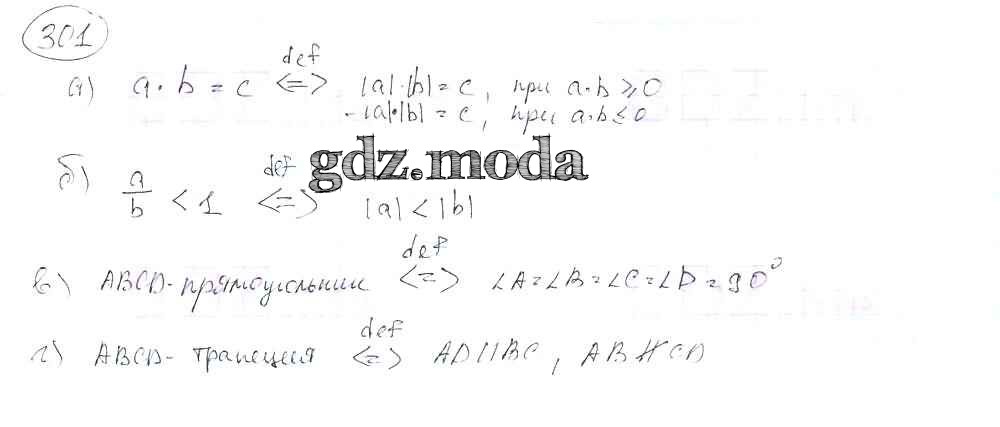 301
а) a · b = c <=> def |a| · |b| = c, при a·b ≥ 0
-|a|·|b| = c, при a·b ≤ 0
gdz.moda
б) a/b < 1 <=> def |a| < |b|
в) ABCD - прямоугольник <=> def ∠A = ∠B = ∠C = ∠D = 90°
г) ABCD - трапеция <=> def AD || BC, AB ∦ CD